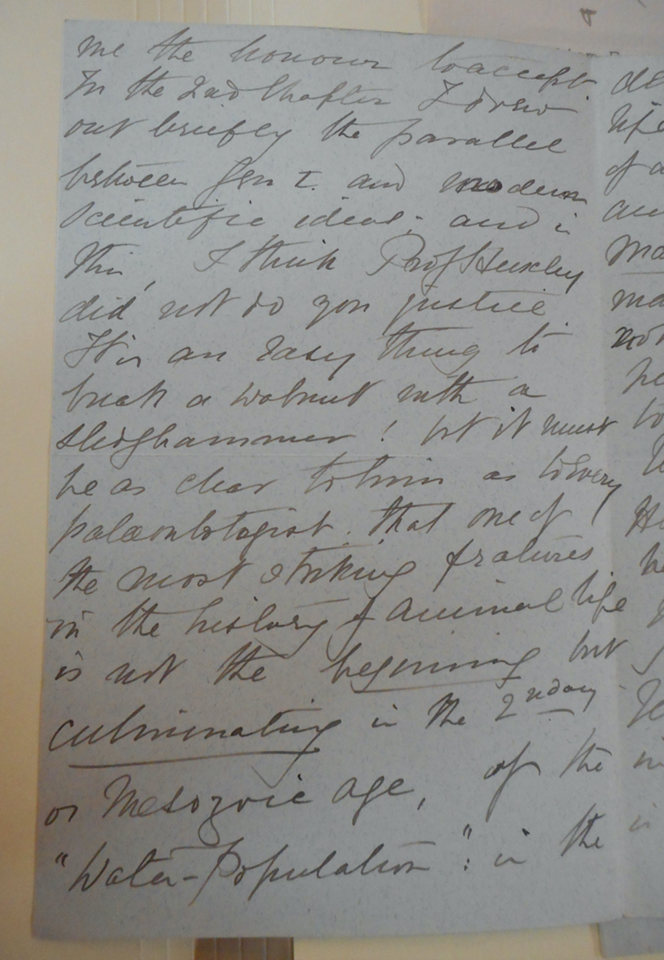 me the honour to accept
In the 2nd Chapter I drew
out briefly the parallel
between Gen I. and modern
scientific ideas; and in
this, I think Prof Huxley
did not do you justice
It is an easy thing to
break a walnut with a
sledghammer! but it must
be as clear to him as to every
palæontologist. that one of
the most striking features
in the history of animal life
is not the beginning but
culminating in the 2ndary
or Mesozoic age, of the
"Water-Population": in the